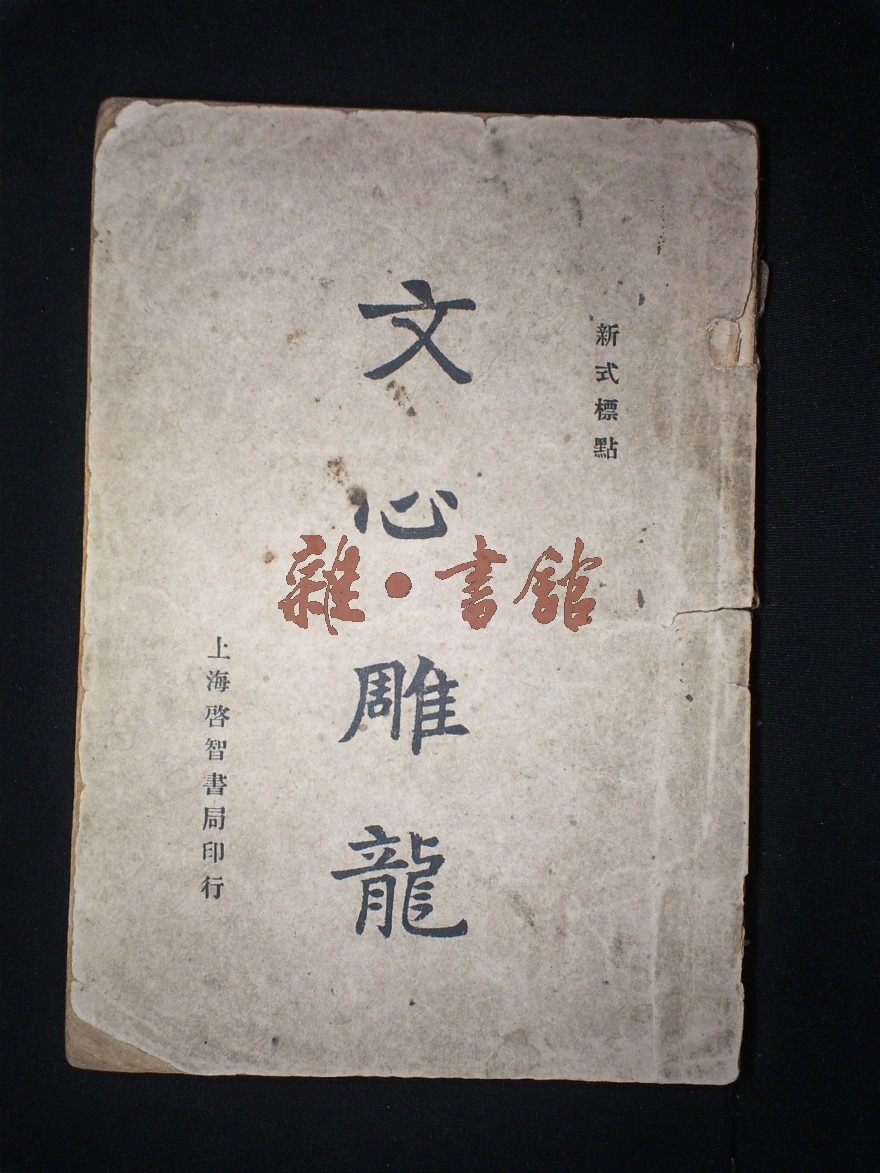 新式標點
文心雕龍
上海啓智書局印行
雜·書舘